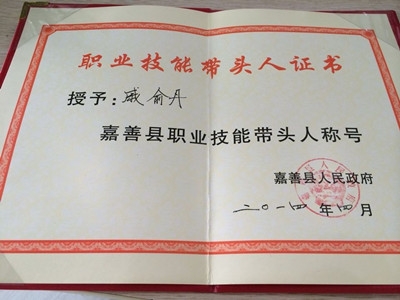 职业技能带头人证书
授予：戚俞丹
嘉善县职业技能带头人称号
嘉善县人民政府
二〇一四年四月